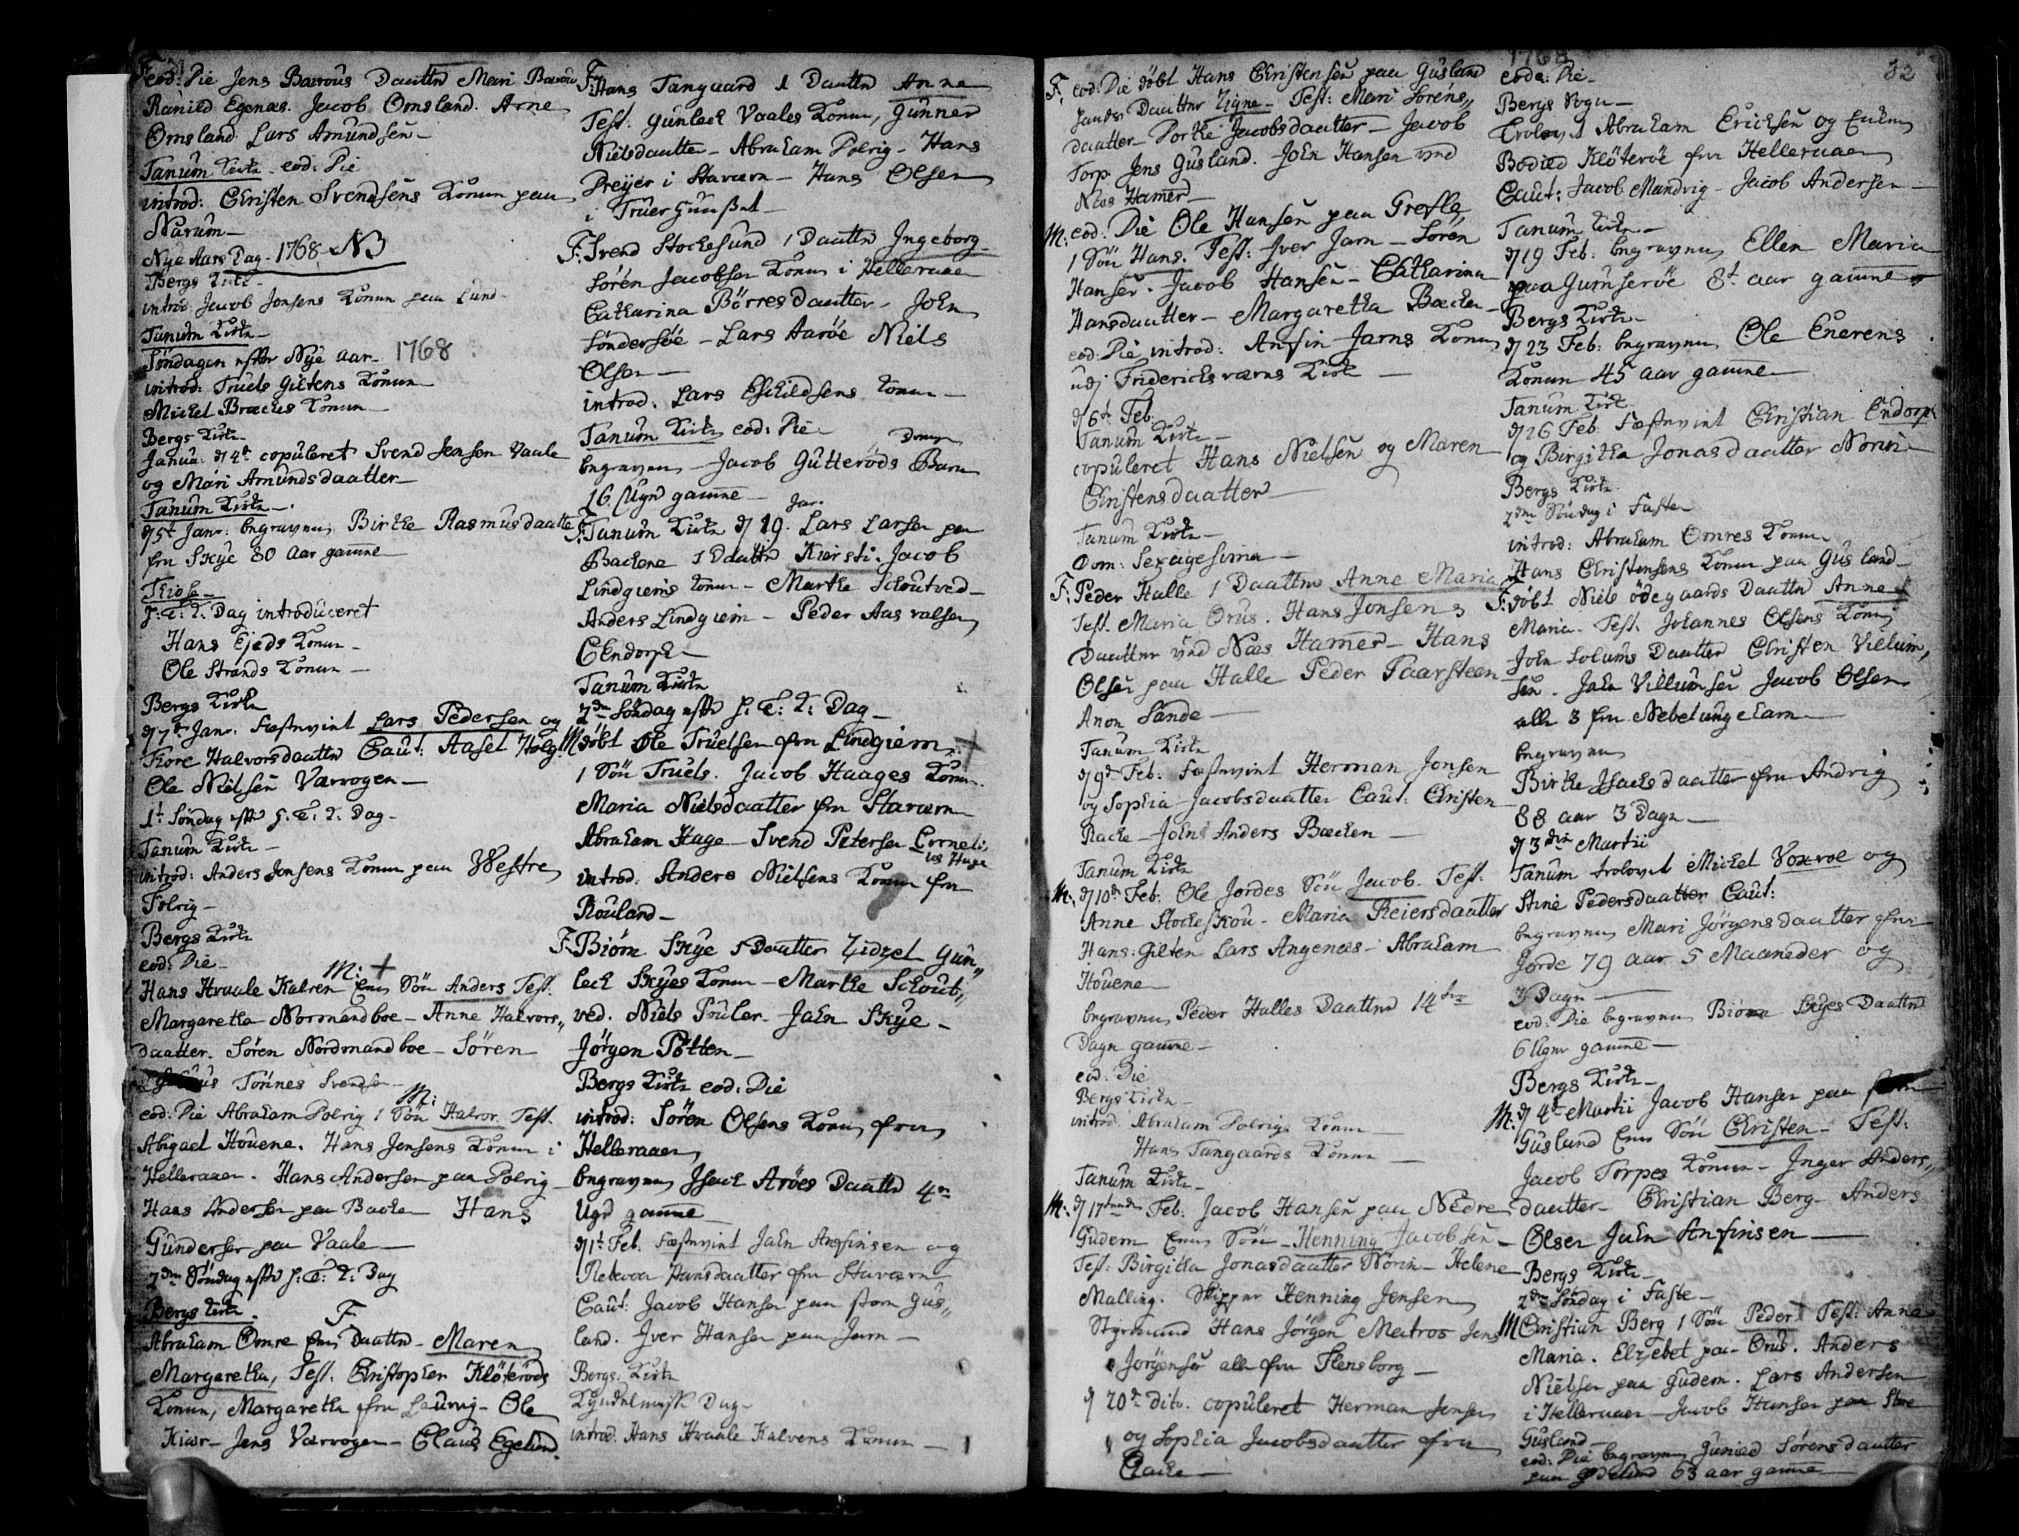 eod: Die Jens Barrous Daatter Mari
Ranild Egenæs. Jacob Omsland. Arne
Omsland Lars Amundsen
Tanum Kirke eod: Die
introd: Christen Svendsens Konen paa
Narum
Nye Aars Dag 1768 NB
Bergs Kirke
introd Jacob Jonsens Konen paa Lund
Tanum Kirke
Søndagen efter Nye aar 1768
introd: Truels Giltens Konen
Mickel Bræckes Konen
Bergs Kirke
Janua: d 4t copuleret Svend Jensen Vaale
og Mari Amundsdaatter
Tanum Kirke
d 5t Janr: begraven Birthe Rasmusdaatter
fra Skye 80 Aar gamme
Thiose
H: T: K: Dag introduceret
Hans Ejeds Konen
Ole Strands Konen
Bergs Kirke
d 7t Janr: Fæstnviet Lars Pedersen og
Tore Halvorsdaatter Caut: Aasel Holg
Ole Nielsen Varvogen
1t Søndag efter H: T: K: Dag
Tanum Kirke
introd: Anders Jonsens Konen paa Westre
Folrig
Bergs Kirke
eod: Die
M: +
Hans Hvaale Kalven Søn Anders Test.
Margaretha Normandboe Anne Halvors
daatter. Søren Nordmandboe Søren
Tønnes Svendsen
M:
eod: Die Abraham Polrig 1 Søn Halvor. Test.
Abigael Houene. Hans Jensens Konen i
Helleraaen. Hans Andersen paa Polrig
Hans Andersen paa Backen Hans
Gundersen paa Vaale
2den Søndag efter H: T: K: Dag
Bergs Kirke F.
Abraham Omre Daatter Maren
Margaretha, Test. Christopher Kløterøds
Konen, Margaretha fra Laurvig Ole
Kiær Jens Varvogen Claus Egelund.
F: Hans Tangaard 1 Daatter Anne
Test. Gunleck Vaales Konen, Gunner
Nielsdaatter Abraham Polrig Hans
Dreyer i Staværn Hans Olsen
i
F: Svend Stockesund 1 Daatter Ingeborg
Søren Jacobsen Konen i Helleraaen
Catharina Børresdaatter John
Søndersøe Lars Aarøe Niels
Olsen
introd. Lars Eschildsens Konen
Tanum Kirke eod: Die
begraven Jacob Gutterøds Barn
16. Ugr gamme
F: Tanum Kirke d 19. Jar. Lars Larsen paa
Backene 1 Daatter Kiersti. Jacob
Lindgiems Konen Marthe Schoutved
Anders Lindgiem Peder Aasvalsen
C Endorph
Tanum Kirke
2den Søndag efter H: T: K: Dag
M døbt Ole Truelsen fra Lindgiem +
1 Søn Truels. Jacob Haages Konen
Maria Nielsdaatter fra Staværn
Abraham Hage Svend Petersen Corneli
us Hage
introd: Anders Nielsens Konen fra
Rouland
F: Biørn Skye 1 Daatter Zidzel Gun
leck Skyes Konen Marthe Schout
ved. Niels Fouler John Skye
Jørgen Potten
Bergs Kirke eod: Die
introd: Søren Olsens Konen fra
Helleraaen
begraven Isach Arøes Daatter 4re
Ugr gamme
d 1t Feb. Fæstnviet John Anfinsen og
Rebecca Hansdaatter fra Staværn
Caut: Jacob Hansen paa Store Gus
land. Iver Hansen paa Jarn
Bergs Kirke
Kyndelmiss Dag
introd. Hans Hvaale Kalvens Konen
F: eod: Die døbt Hans Christensen paa Gusland
Daatter Zigne Test: Mari Sørens
daatter Dorthe Jacobsdaatter Jacob
Torp Jens Gusland. John Hansen ved
Næs Hamer
M: eod: Die Ole Hansen paa Grefle
1 Søn Hans. Test: Iver Jarn Søren
Hansen. Jacob Hansen Catharina
Hansdaatter Margaretha Bæcken
eod: Die introd: Anfin Jarns Konen
udj Fridericksværns Kirke
d 6t Feb
Tanum Kirke
copuleret Hans Nielsen og Maren
Christensdaatter
Tanum Kirke
Dom: Sexagesima
F: Peder Halle 1 Daatter Anne Maria
Test. Maria Onus. Hans Jonsens
Daatter ved Næs Hamer Hans
Olsen paa Halle Peder Faarsteen
Anon Sande
Tanum Kirke
d 9d Feb: Fæstnviet Herman Jonsen
og Sophia Jacobsdaatter Caut: Christen
Racke John Anders Bæcken
Tanum Kirke
M: d 10de Feb. Ole Jordes Søn Jacob. Test:
Anne Stockeskou Maria Reiersdaatter
Hans Gilten Lars Angenæs Abraham
Houene
begraven Peder Halles Daatter 14
Dagr gamme
eod: Die
Bergs Kirke
introd: Abraham Polrigs Konen
Hans Tangaards Konen
Tanum Kirke
M: d 17 Feb: Jacob Hansen paa Nedre
Gudem Søn Henning Jacobsen
Test: Birgitha Jonasdaatter Norin Helene
Malling. Skipper Henning Jensen
Styrmand Hans Jørgen Matros Jens
Jørgensen alle fra Flensborg
d 20de dito. copuleret Herman Jensen
og Sophia Jacobsdaatter fra
Racke
1768
32
eod: Die
Bergs Sogn
Trolovet Abraham Ericksen og
Bodild Kløterøe fra Helleraaen
Caut: Jacob Mandvig Jacob Andersen
Tanum Kirke
d 19 Feb: begraven Ellen Maria
paa Gumserøe 8t aar gamme
Bergs Kirke
d 23 Feb: begraven Ole Enerens
Konen 45 aar gamme
Tanum Kirke
d 26 Feb. Fæstnviet Christian Endorph
og Birgitha Jonasdaatter Norin
Bergs Kirke
2den Søndag i Faste
introd: Abraham Omres Konen
Hans Christensens Konen paa Gusland
F: døbt Niels Ødegaards Daatter Anne
Maria. Test. Johannes Olsens Konen
John Solums Daatter Christen Vielum
sen. John Villumsen Jacob Olsen
alle 3 fra Nebelungehavn
begraven
Birthe Isachsdaatter fra Andvig
88 aar 3 Dage
d 3die Martii
Tanum trolovet Mickel Voxroe og
Stine Pedersdaatter Caut:
begraven Mari Jørgensdaatter fra
Jorde 79 aar 5 Maaneder og
3 Dagr
eod: Die begraven Biørn Skyes Daatter
6 Ugr gamme
Bergs Kirke
M: d 4t Martii Jacob Hansen paa Store
Gusland Søn Christen Test:
Jacob Torpes Konen Inger Anders
daatter Christian Berg Anders
Olsen John Anfinsen
Bergs Kirke
2den Søndag i Faste
M Christian Berg 1 Søn Peder Test: Anne
Maria. Elzebet paa Onus. Anders
Nielsen paa Gudem. Lars Andersen
i Helleraaen Jacob Hansen paa Store
Gusland
eod: Die begraven Gunild Sørensdaatter
paa 63 aar gamme